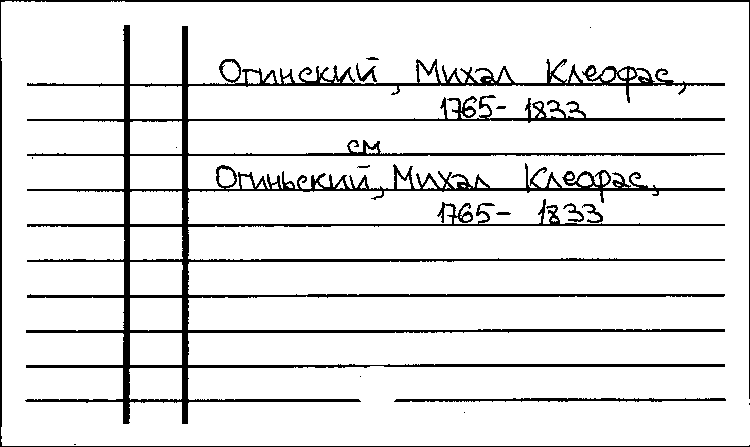 Огинский, Михал Клеофас,
1765- 1833
см
Огиньский, Михал Клеофас,
1765- 1833